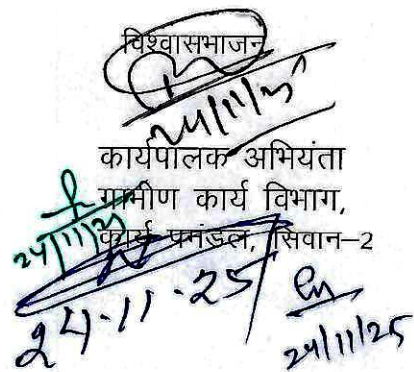 विश्वासभाजन
24/11/25
कार्यपालक अभियंता
ग्रामीण कार्य विभाग,
24/11/25
कार्य प्रमंडल, सिवान–2
24.11.25
24/11/25